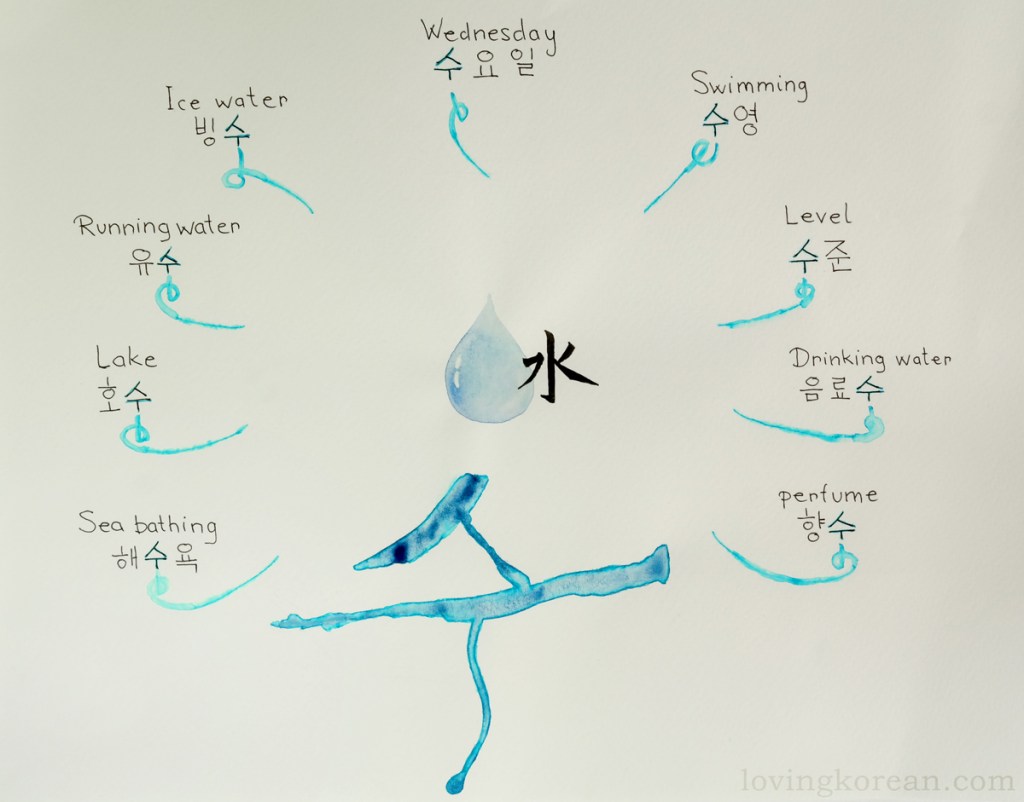 Wednesday
수요일
Ice water
빙수
Swimming
수영
Running water
유수
Level
수준
Lake
호수
水
Drinking water
음료수
Sea bathing
해수욕
perfume
향수
수
lovingkorean.com